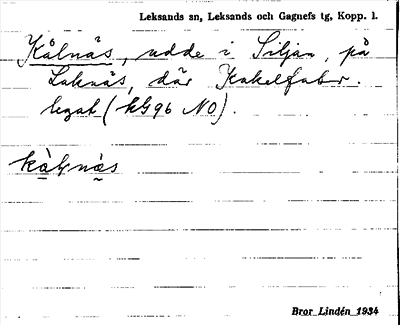 Leksands sn, Leksands och Gagnefs tg, Kopp. l.
Kålnäs, udde i Siljan, på
Laknäs, där Kakelfabr.
legat (kG96 NO).
Bror Lindén 1934